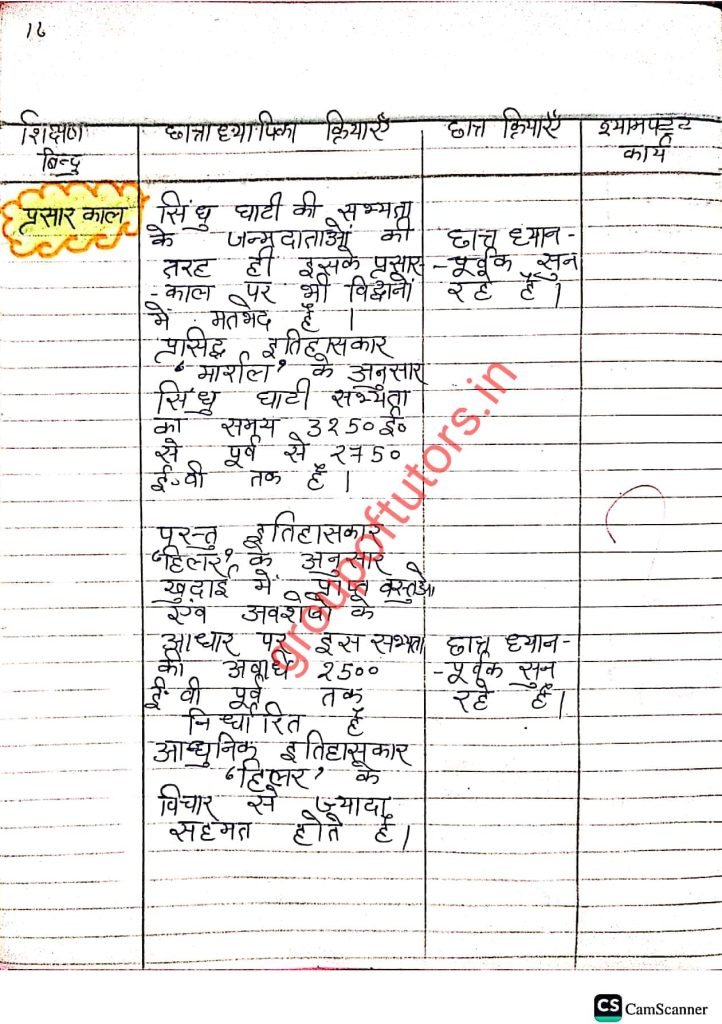 16
शिक्षण बिन्दु
छात्राध्यापिका क्रियाएँ
छात्र क्रियाएँ
श्यामपट्ट कार्य
प्रसार काल
सिंधु घाटी की सभ्यता
के जन्मदाताओं की
तरह ही इसके प्रसार-
-काल पर भी विद्वानों
में मतभेद हैं ।
प्रासिद्ध इतिहासकार
'मार्शल' के अनुसार
सिंधु घाटी सभ्यता
का समय 3250 ई॰
से पूर्व से 2750
ई॰वी तक हैं ।
छात्र ध्यान-
-पूर्वक सुन
रहे हैं ।
परन्तु इतिहासकार
'हिलर' के अनुसार
खुदाई में प्राप्त वस्तुओं
एंव अवशेषों के
आधार पर इस सभ्यता
की अवधि 2500
ई॰वी पूर्व तक
निर्धारित हैं
आधुनिक इतिहासकार
'हिलर' के
विचार से ज्यादा
सहमत होते हैं ।
छात्र ध्यान-
-पूर्वक सुन
रहे हैं ।
groupoftutors.in
CS CamScanner